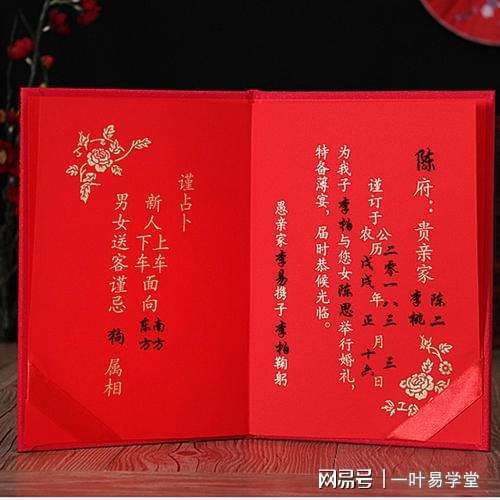 陈府：贵亲家 陈二 李桃
谨订于公历二零一八年三月三日
农戊戌正十六
为我子李柏与您女陈思举行婚礼，
特备薄宴，届时恭候光临。
愚亲家李易携子李柏鞠躬
谨占卜
新人上车面向南方
下车东方
男女送客谨忌狗属相
网易号 一叶易学堂